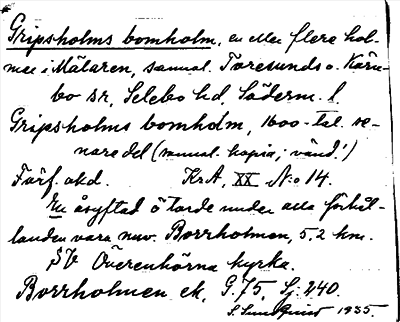 Gripsholms bomholm, en eller flera hol-
mar i Mälaren, samml. Toresunds o. Kärn-
bo sn, Selebo hd, Söderm. l.
Gripsholms bomholm, 1600-tal. se-
nare del (samml. kopia; vänd!)
Förf. okd. KrA, XX N:o 14.
En åsyftad ö torde under alla förhål-
landen vara nuv. Borrholmen, 5,2 km.
SV Överenhörna kyrka.
Borrholmen ek, G. 75, Sj. 240.
S. Lundquist 1935.